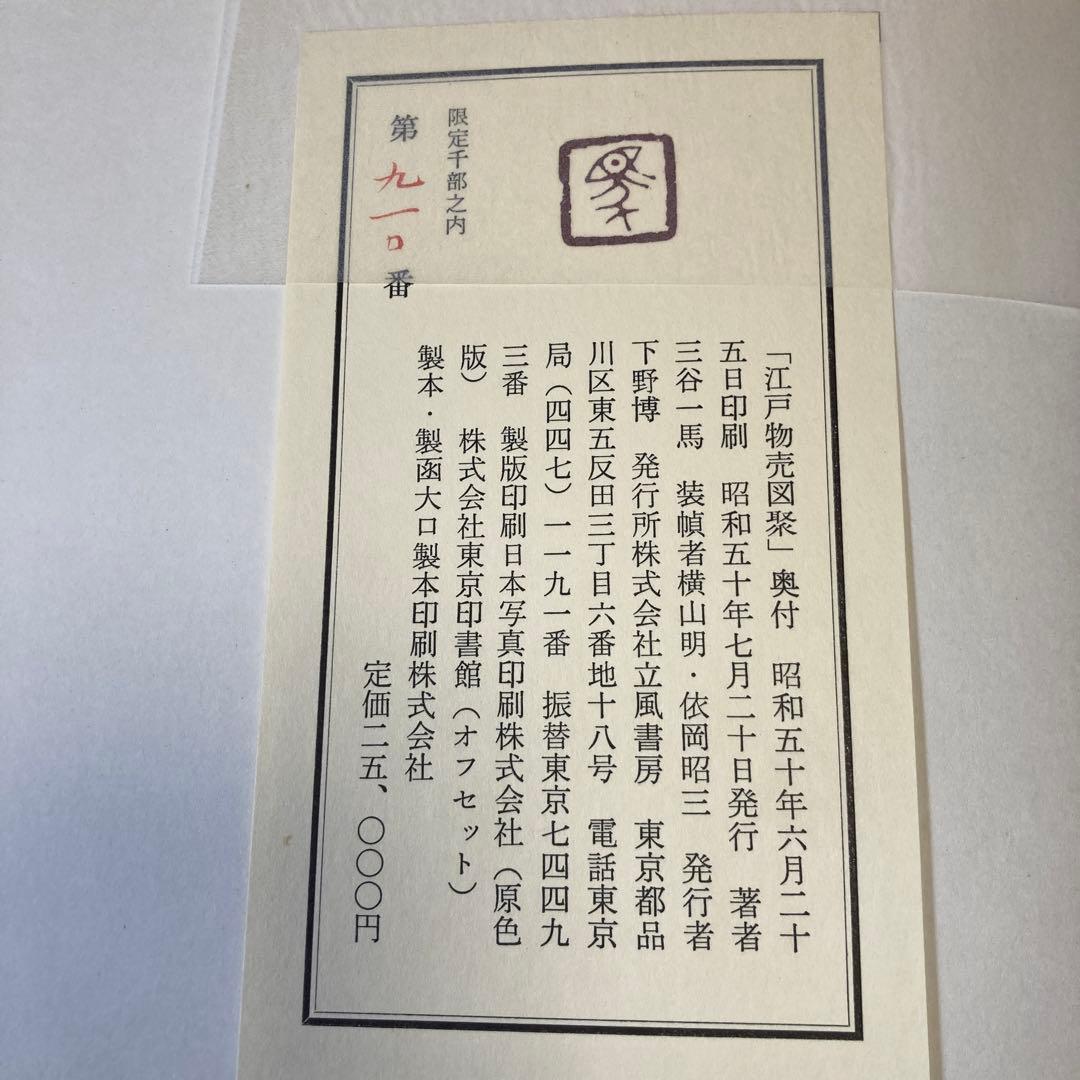 「江戸物売図聚」奥付　昭和五十年六月二十
五日印刷　昭和五十年七月二十日発行　著者
三谷一馬　装幀者横山明・依岡昭三　発行者
下野博　発行所株式会社立風書房　東京都品
川区東五反田三丁目六番地十八号　電話東京
局（四四七）一一九一番　振替東京七四四九
三番　製版印刷日本写真印刷株式会社（原色
版）　株式会社東京印書館（オフセット）
製本・製函大口製本印刷株式会社
定価二五、〇〇〇円
限定千部之内
第九一〇番